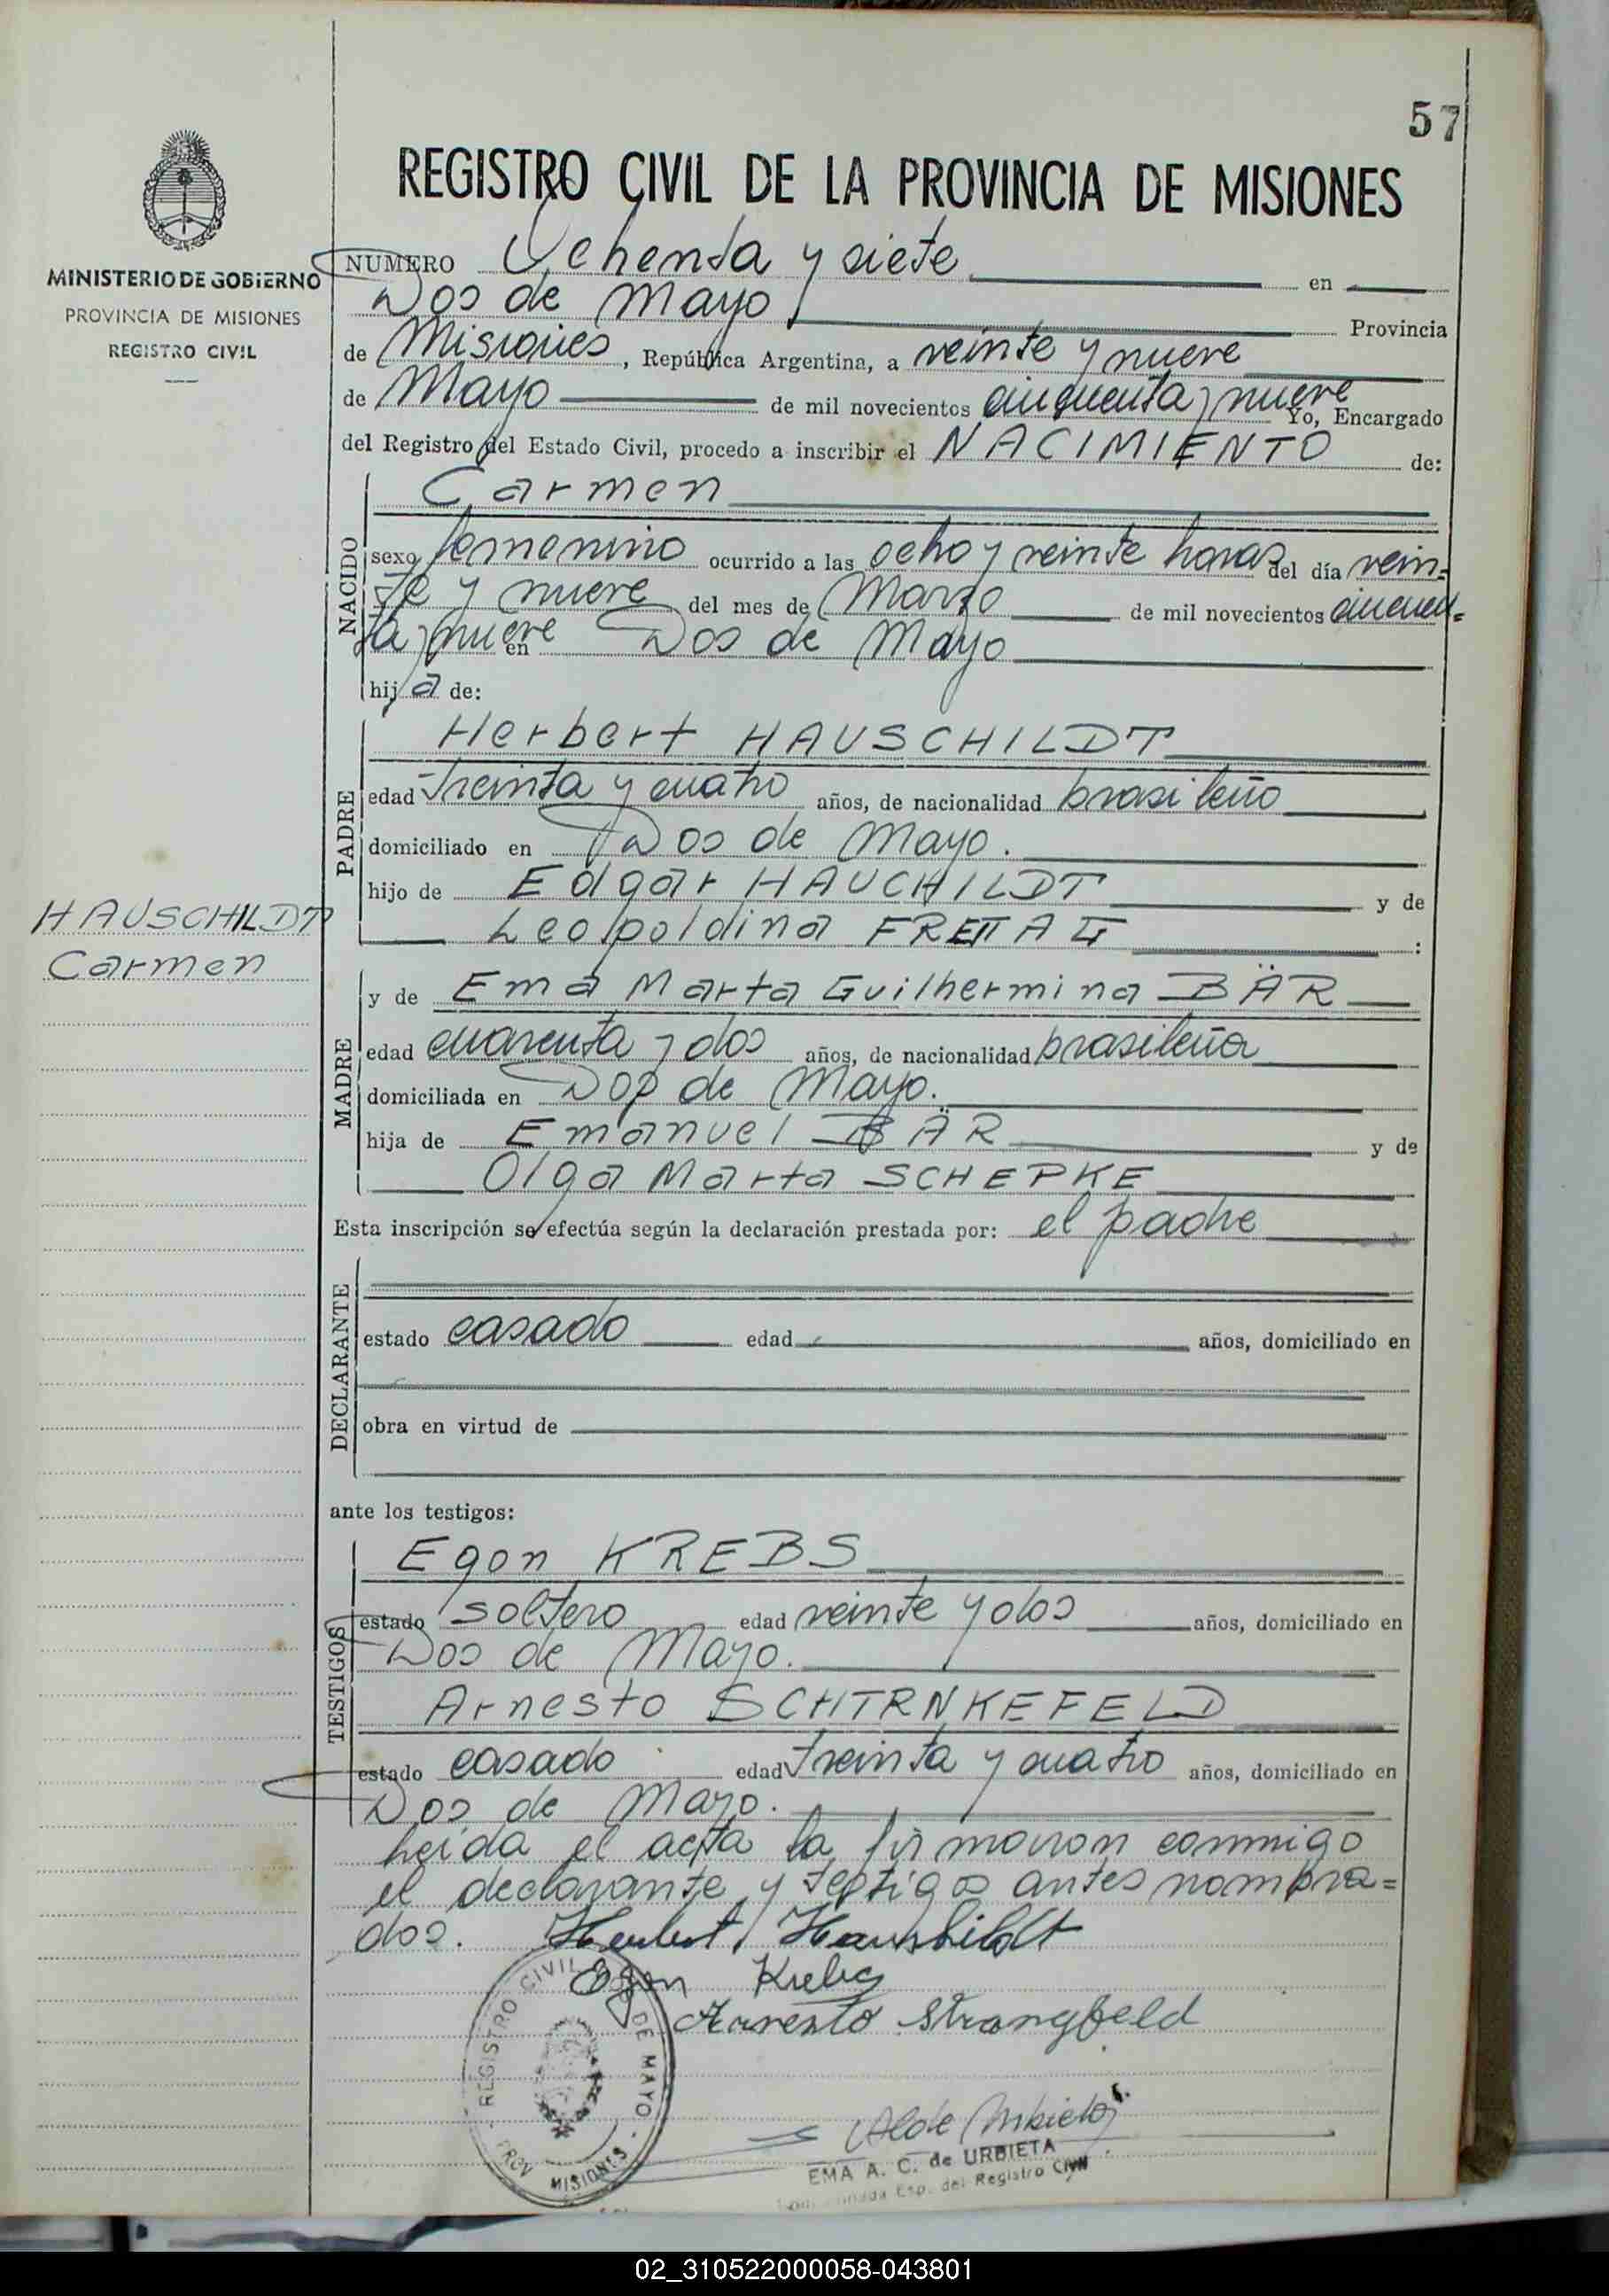 57
REGISTRO CIVIL DE LA PROVINCIA DE MISIONES
MINISTERIO DE GOBIERNO
PROVINCIA DE MISIONES
REGISTRO CIVIL
NUMERO Ochenta y siete en
Dos de Mayo Provincia
de Misiones, República Argentina, a veinte y nueve
de Mayo de mil novecientos cincuenta y nueve Yo, Encargado
del Registro del Estado Civil, procedo a inscribir el NACIMIENTO de:
NACIDO
Carmen
sexo femenino ocurrido a las ocho y veinte horas del día vein=
te y nueve del mes de Marzo de mil novecientos cincuen=
ta y nueve en Dos de Mayo
hija de:
PADRE
Herbert HAUSCHILDT
edad treinta y cuatro años, de nacionalidad brasileño
domiciliado en Dos de Mayo.
hijo de Edgar HAUCHILDT y de
Leopoldina FREITAG :
HAUSCHILDT
Carmen
MADRE
y de Ema Marta Guilhermina BÄR
edad cuarenta y dos años, de nacionalidad brasileña
domiciliada en Dos de Mayo.
hija de Emanuel BÄR y de
Olga Marta SCHEPKE
Esta inscripción se efectúa según la declaración prestada por: el padre
DECLARANTE
estado casado edad años, domiciliado en
obra en virtud de
ante los testigos:
TESTIGOS
Egon KREBS
estado soltero edad veinte y dos años, domiciliado en
Dos de Mayo.
Arnesto SCHTRNKEFELD
estado casado edad treinta y cuatro años, domiciliado en
Dos de Mayo.
Leida el acta la firmaron conmigo
el declarante y testigos antes nombra=
dos. Herbert Hauschildt
Egon Krebs
Arnesto Strangfeld
REGISTRO CIVIL DOS DE MAYO
PROV MISIONES
EMA A. C. de URBIETA
Esp. del Registro Civil
02_310522000058-043801